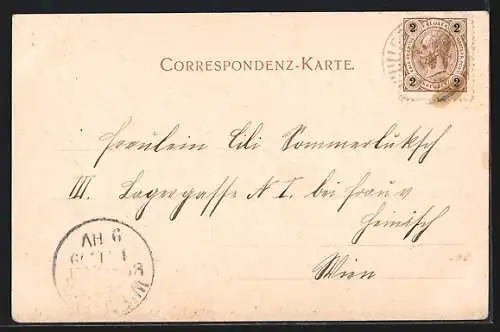 CORRESPONDENZ-KARTE.
2 2
2 2
Fräulein Cili Sommerluksch
III. Lagergasse N I. bei Frau v
Heinisch
Wien